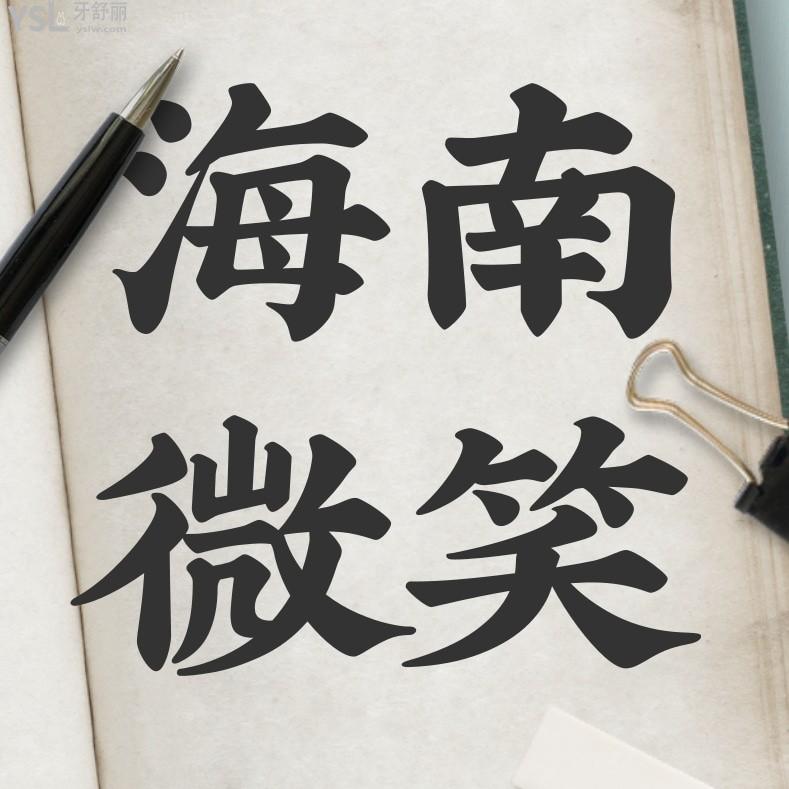 YSL 牙舒丽
yslw.com
海南
微笑